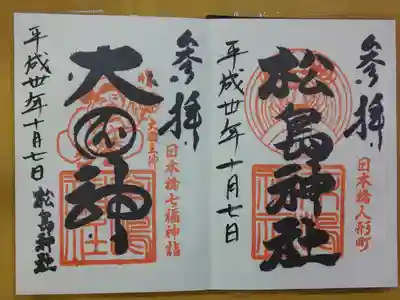 参拝
日本橋人形町
松島神社
平成卅年十月七日
参拝
日本橋七福神詣
大國主神
大国神
平成卅年十月七日
松島神社